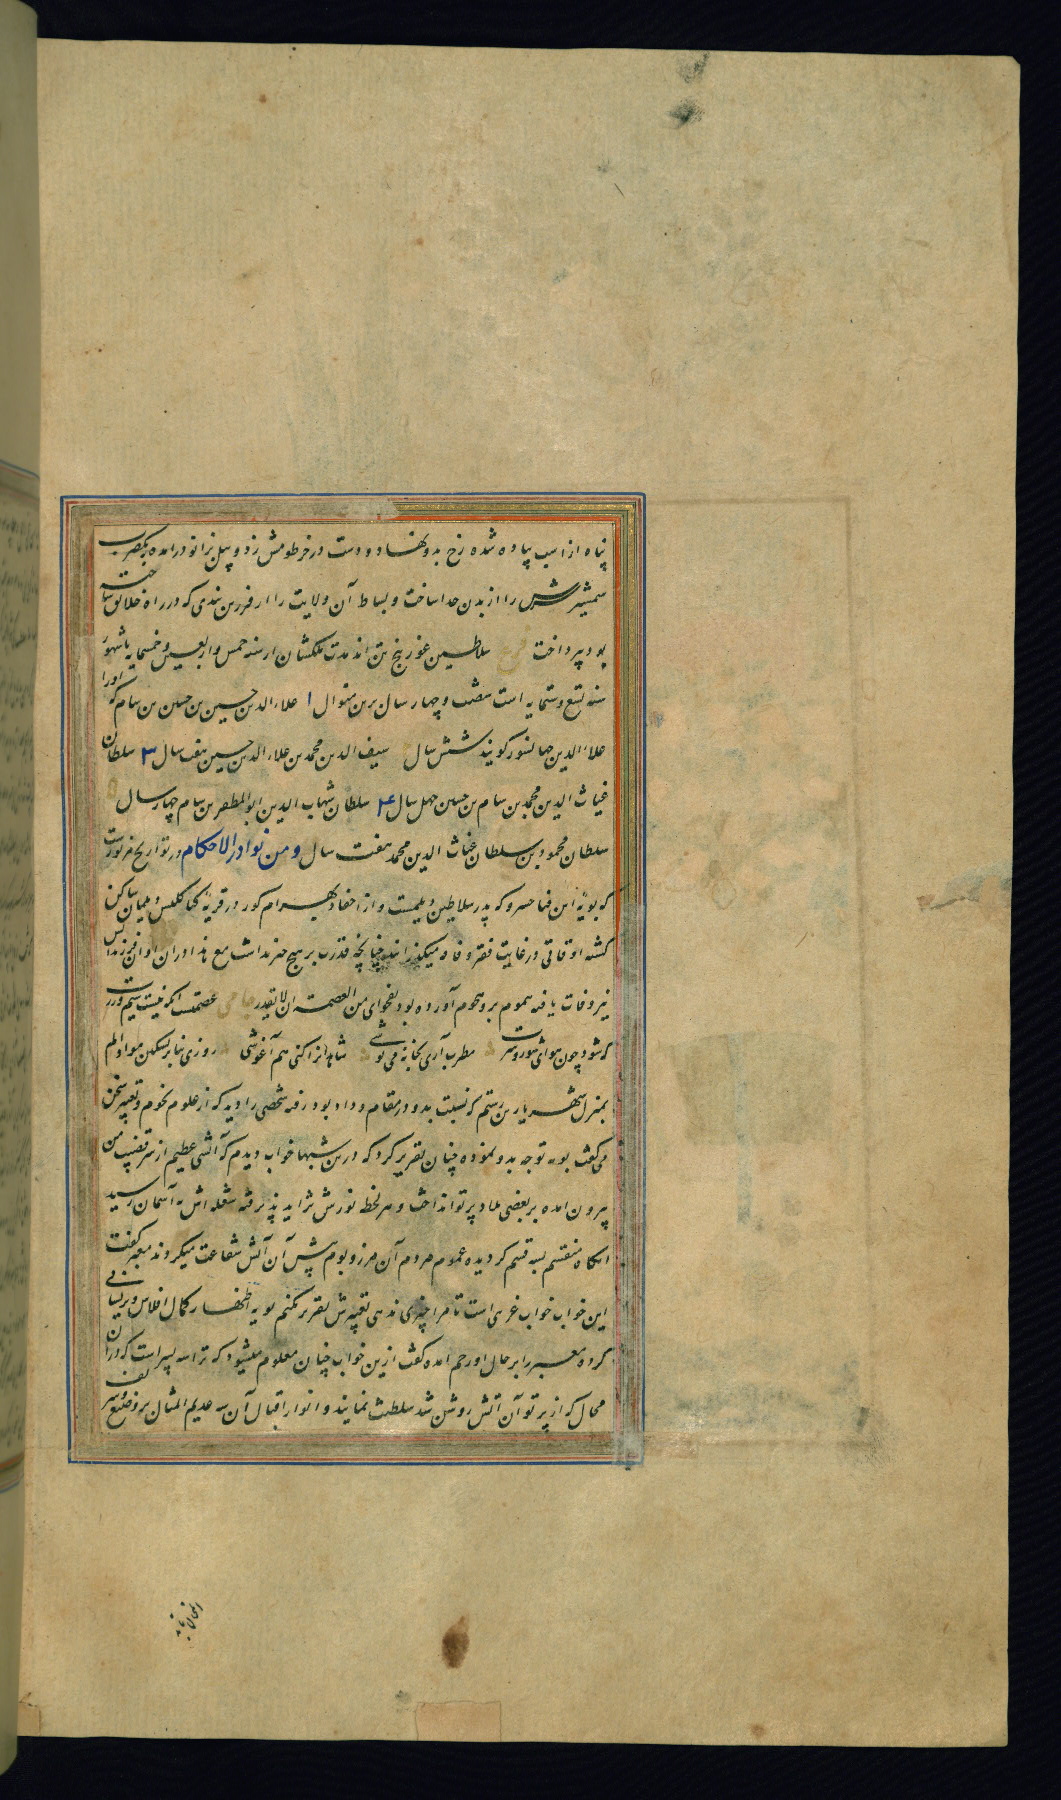 پناه از اسب پیاده شده رخ بدو نهاد و دست در خرطومش زد و پیل بزانو درامده بیکضرب
شمشیر سرش را از بدن جدا ساخت و بساط آن ولایت را از فرزین بندی که در راه خلایق ساخته
بود بپرداخت سلاطین غور پنج تن اند مدت ملکشان از سنه خمس و اربعین و خمسمایه تا شهور
سنه تسع و ستمایه است شصت و چهار سال برین منوال ۱ علاء الدین حسین بن حسین بن سام که اورا
علاء الدین جهانسوز کویند شش سال سیف الدین محمد بن علاء الدین حسین هفت سال ۳ سلطان
غیاث الدین محمد بن سام بن حسین چهل سال ۴ سلطان شهاب الدین ابو المظفر بن سام چهار سال ۵
سلطان محمود بن سلطان غیاث الدین محمد هفت سال و من نوادر الاحکام در تواریخ مزبورست
که بویهٔ ابن فنا خسرو که پدر سلاطین دیلمست و از احفاد بهرام کور در قریهٔ ساکن
کشته اوقاتی در غایت فقر و فاقه میکذرانید چنانچه قدرت بر هیچ چیز نداشت مع هذا در ان اوان فرزندانش
نیز وفات یافته هموم برو هجوم آورده بود بفحوای من العصمة ان لا تقدر جامی عصمتست انکه نیست سیم و زرت
که شود چون هوای شور و شرت مطرب آری بخانه می نوشی شاهدانرا کنی هم آغوشی روزی بنا بر تسکین مواد الم
بمنزل شهریار بن رستم که نسبت بدو در مقام وداد بود رفته شخصی را دید که از علوم نجوم و تعبیر سخن
می کفت بویه توجه بدو نموده چنان تقریر کرد که درین شبها خواب دیدم که آتشی عظیم از سر قضیب من
بیرون امده بر بعضی بلاد پرتو انداخت و هر لحظه نورش تزاید پذیرفته شعله اش به آسمان رسید
انکاه منقسم بسه قسم کردیده عموم مردم آن مرز و بوم پیش آن آتش شفاعت میکردند معبر کفت
این خواب خواب غریبی است تا مرا چیزی ندهی تعبیرش تقریر نکنم بویه اظهار کمال افلاس و پریشانی
کرده معبر را بر حال او رحم امده کفت ازین خواب چنان معلوم میشود که ترا سه پسر است که در ان
محال که از پرتو آن آتش روشن شد سلطنت نمایند و انوار اقبال آن سه عدیم المثال بر وضیع و شریف